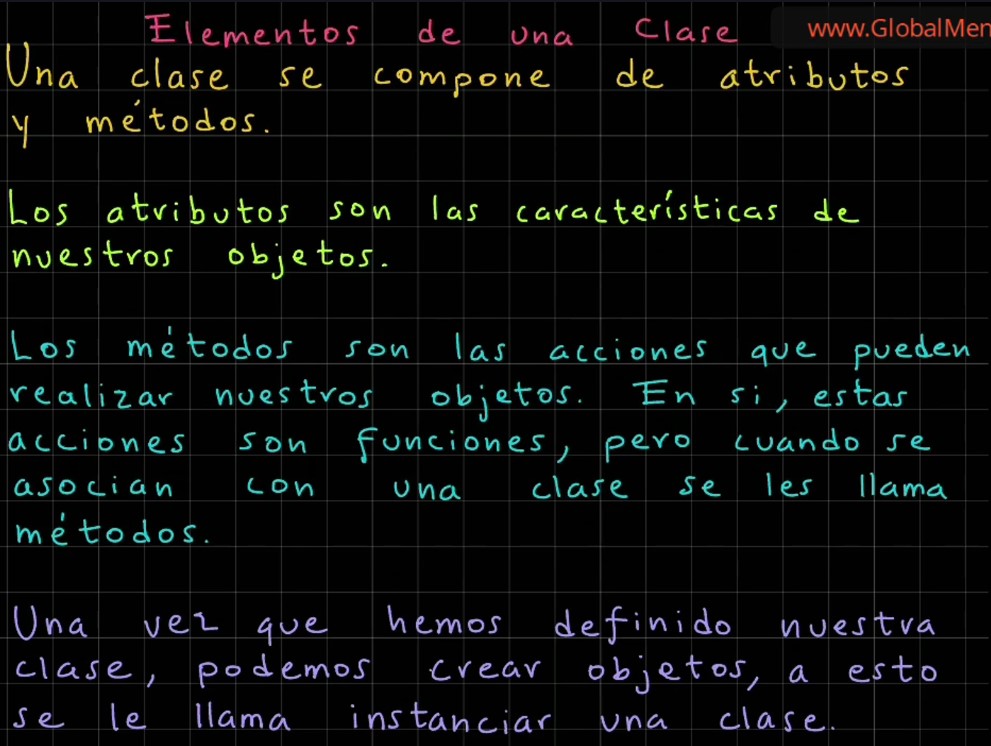 Elementos de una Clase
www.GlobalMen
Una clase se compone de atributos
y métodos.
Los atributos son las características de
nuestros objetos.
Los métodos son las acciones que pueden
realizar nuestros objetos. En si, estas
acciones son funciones, pero cuando se
asocian con una clase se les llama
métodos.
Una vez que hemos definido nuestra
clase, podemos crear objetos, a esto
se le llama instanciar una clase.